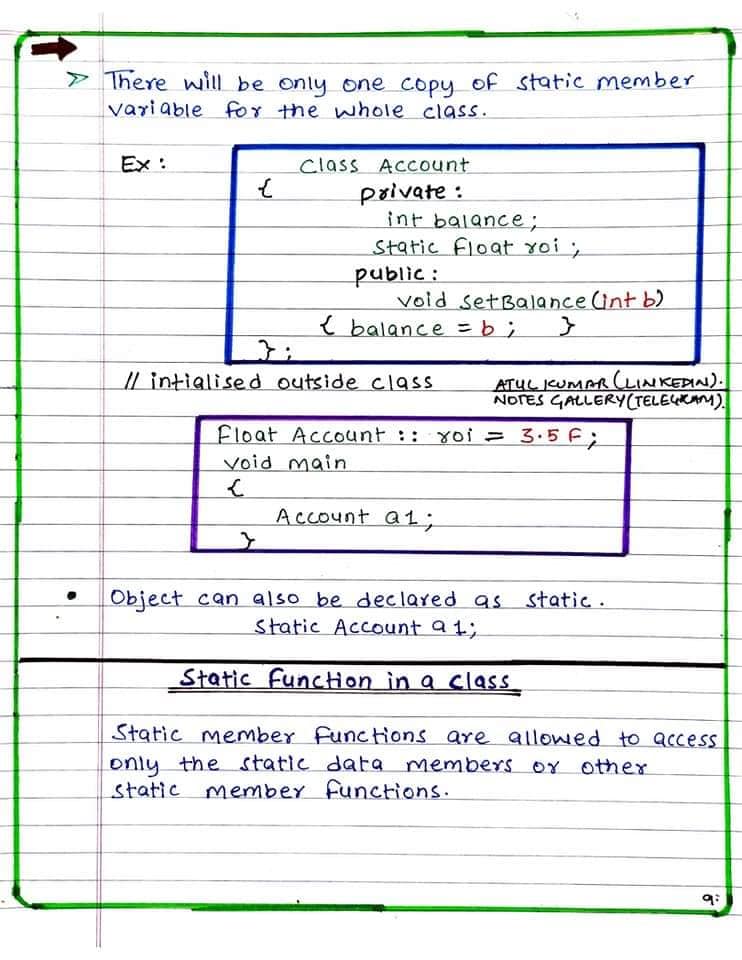 ➤ There will be only one copy of static member
variable for the whole class.
Ex :
Class Account
{ private :
int balance ;
Static Float roi ;
public :
void SetBalance (int b)
{ balance = b ; }
} ;
// intialised outside class
ATUL KUMAR (LINKEDIN).
NOTES GALLERY (TELEGRAM).
Float Account :: roi = 3.5 F ;
void main
{
Account a1 ;
}
• Object can also be declared as static .
Static Account a1;
Static Function in a class
Static member functions are allowed to access
only the static data members or other
static member functions.
9: